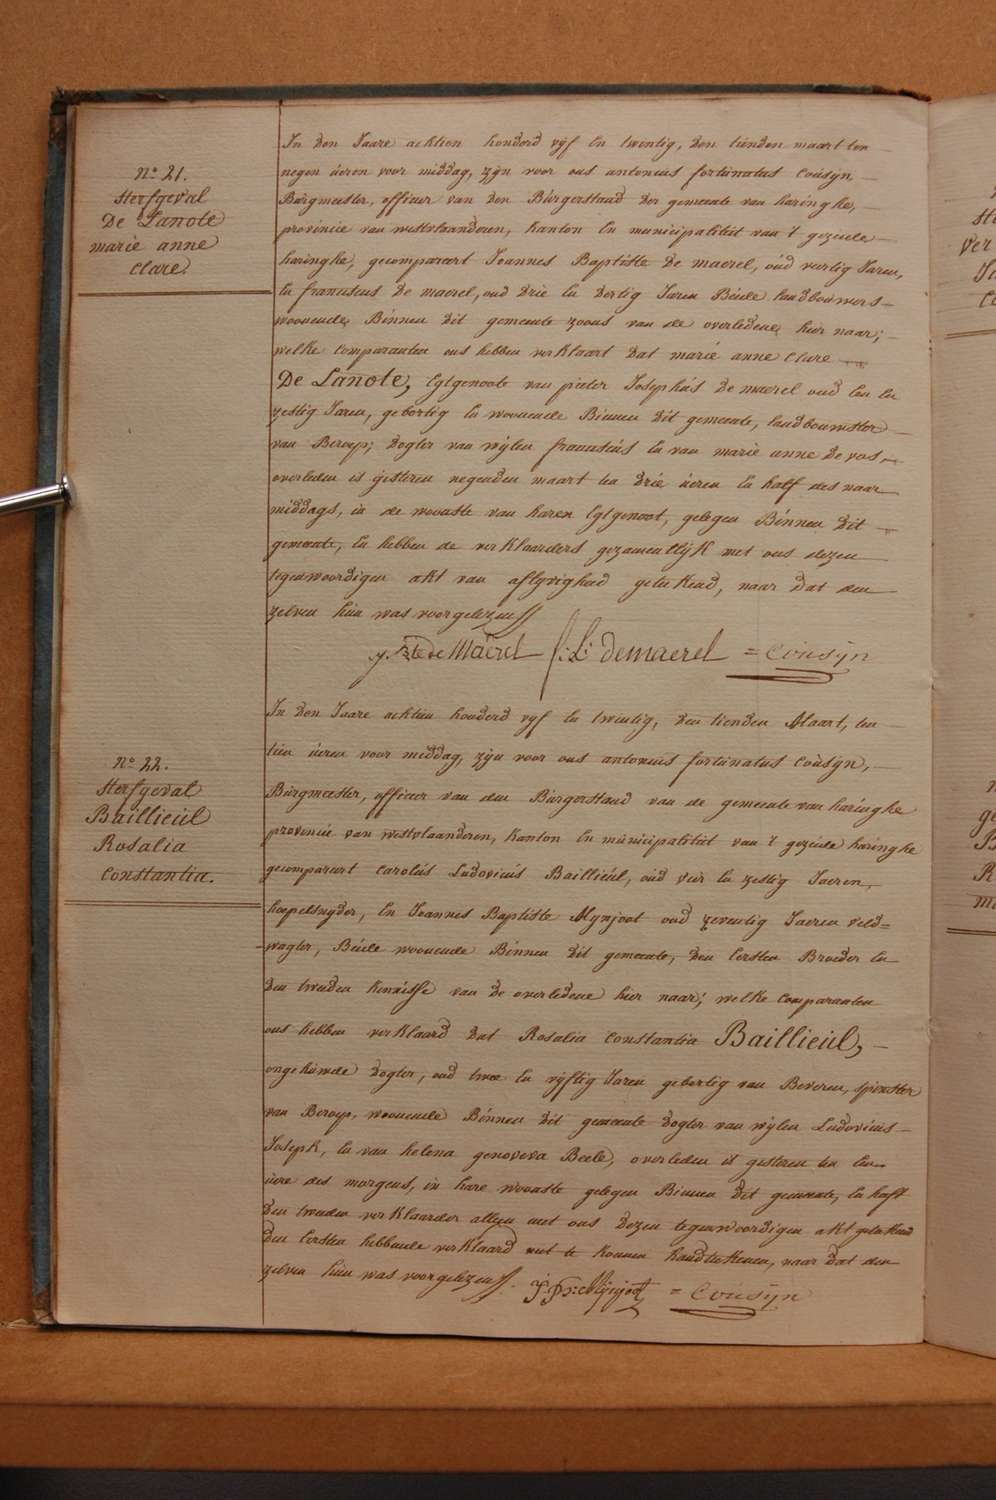 N.º 21.
Sterfgeval
De Lanote
marie anne
Clare.
In den Jaare achtien honderd vyf En twintig, den tienden maart ten
negen ùeren voor middag, zÿn voor ons antonius fortùnatus Coùsyn
Bùrgmeester, officier van den Bùrgerstaad der gemeente van haringhe,
provincie van westvlaanderen, kanton En municipaliteit van 't gezeide
haringhe, gecompareert Joannes Baptiste De maerel, oùd veertig Jaren,
En franciscus De maerel, oud drie En dertig Jaren Beide landbouwers
woonende Binnen dit gemeente zoons van de overledene hier naar;
welke comparanten ons hebben verklaart dat marie anne Clare
De Lanote, Egtgenoote van pieter Josephùs De maerel oud Een En
zestig Jaren, gebortig En woonende Binnen dit gemeente, landbouwster
van Beroep; dogter van wylen franciscùs En van marie anne De vos,
overleden is gisteren negenden maart ten drie ùeren En half des naar
middags, in de woonste van haren Egtgenoot, gelegen Binnen dit
gemeente, En hebben de verklaarders gezamentlyk met ons dezen
tegenwoordigen akt van aflyvigheid geteekend, naar dat den
zelven hun was voorgelezen
J. Bte de Maerel f: L: demaerel = Coùsÿn
N.º 22.
Sterfgeval
Baillieùl
Rosalia
Constantia.
In den Jaare achtien honderd vyf En twintig, den tienden Maart, ten
tien ùeren voor middag, zÿn voor ons antonius fortùnatus Coùsyn,
Bùrgmeester, officier van den Bùrgerstaad van de gemeente van haringhe
provincie van westvlaanderen, kanton En mùnicipaliteit van 't gezeide haringhe
gecompareert Carolùs Ludovicùs Baillieùl, oùd vier En zestig Jaeren,
hoepelsnyder, En Joannes Baptiste Mynjoot oud zeventig Jaeren veld=
wagter, Beide woonende Binnen dit gemeente, den Eersten Broeder En
den tweeden kennisse van de overledene hier naar; welke comparanten
ons hebben verklaard dat Rosalia Constantia Baillieùl,
ongehùwde dogter, oud twee En vyftig Jaren gebortig van Beveren, spinster
van Beroep, woonende Binnen dit gemeente dogter van wylen Ludovicùs
Joseph, En van helena genoveva Beele, overleden is gisteren ten Een
ùere des morgens, in hare woonste gelegen Binnen dit gemeente, En heeft
den tweeden verklaarder alleen met ons dezen tegenwoordigen akt geteekend
den Eersten hebbende verklaard niet te konnen handteekenen, naar dat den
zelven hùn was voorgelezen. J: Bt: Mÿnjoot = Coùsÿn